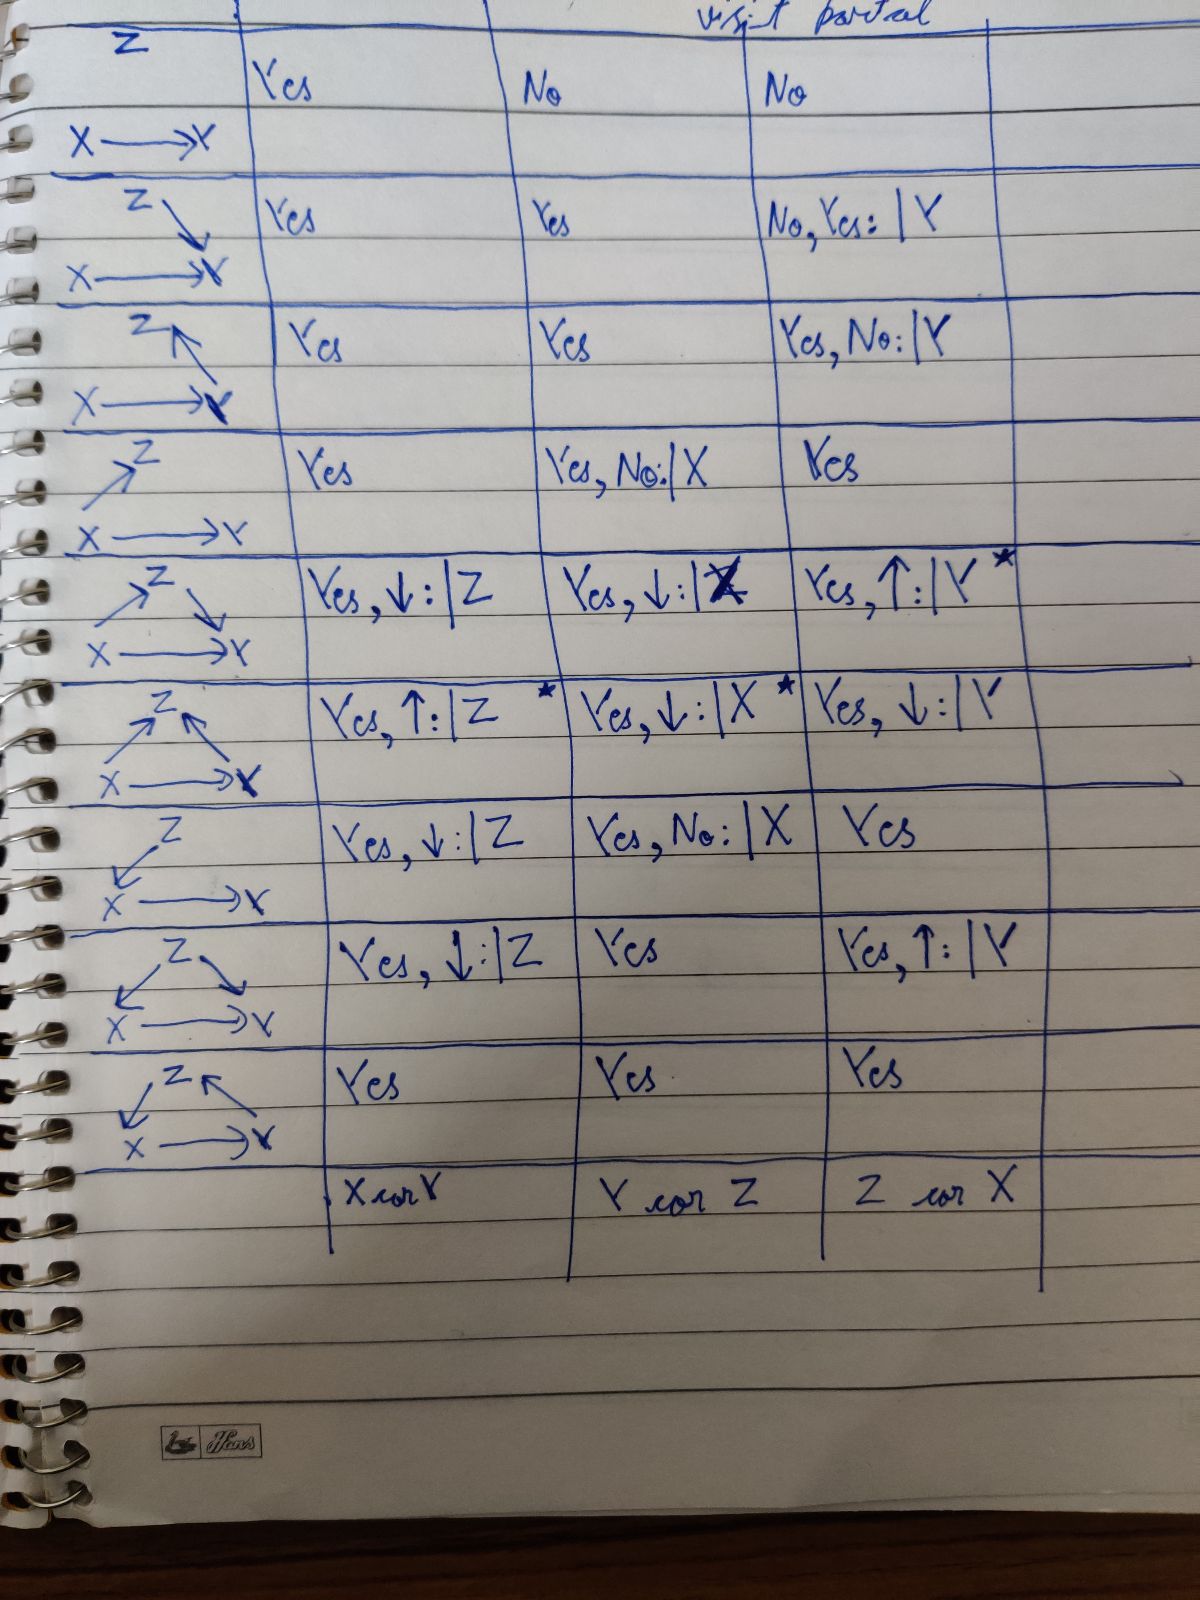 visit partial
Z
Yes No No
X → Y
Z
Yes Yes No, Yes: | Y
X → Y
Z
Yes Yes Yes, No: | Y
X → Y
Z
Yes Yes, No: | X Yes
X → Y
Z
Yes, ↓: | Z Yes, ↓: | X Yes, ↑: | Y *
X → Y
Z
Yes, ↑: | Z * Yes, ↓: | X * Yes, ↓: | Y
X → Y
Z
Yes, ↓: | Z Yes, No: | X Yes
X → Y
Z
Yes, ↓: | Z Yes Yes, ↑: | Y
X → Y
Z
Yes Yes Yes
X → Y
X cor Y Y cor Z Z cor X
Hans